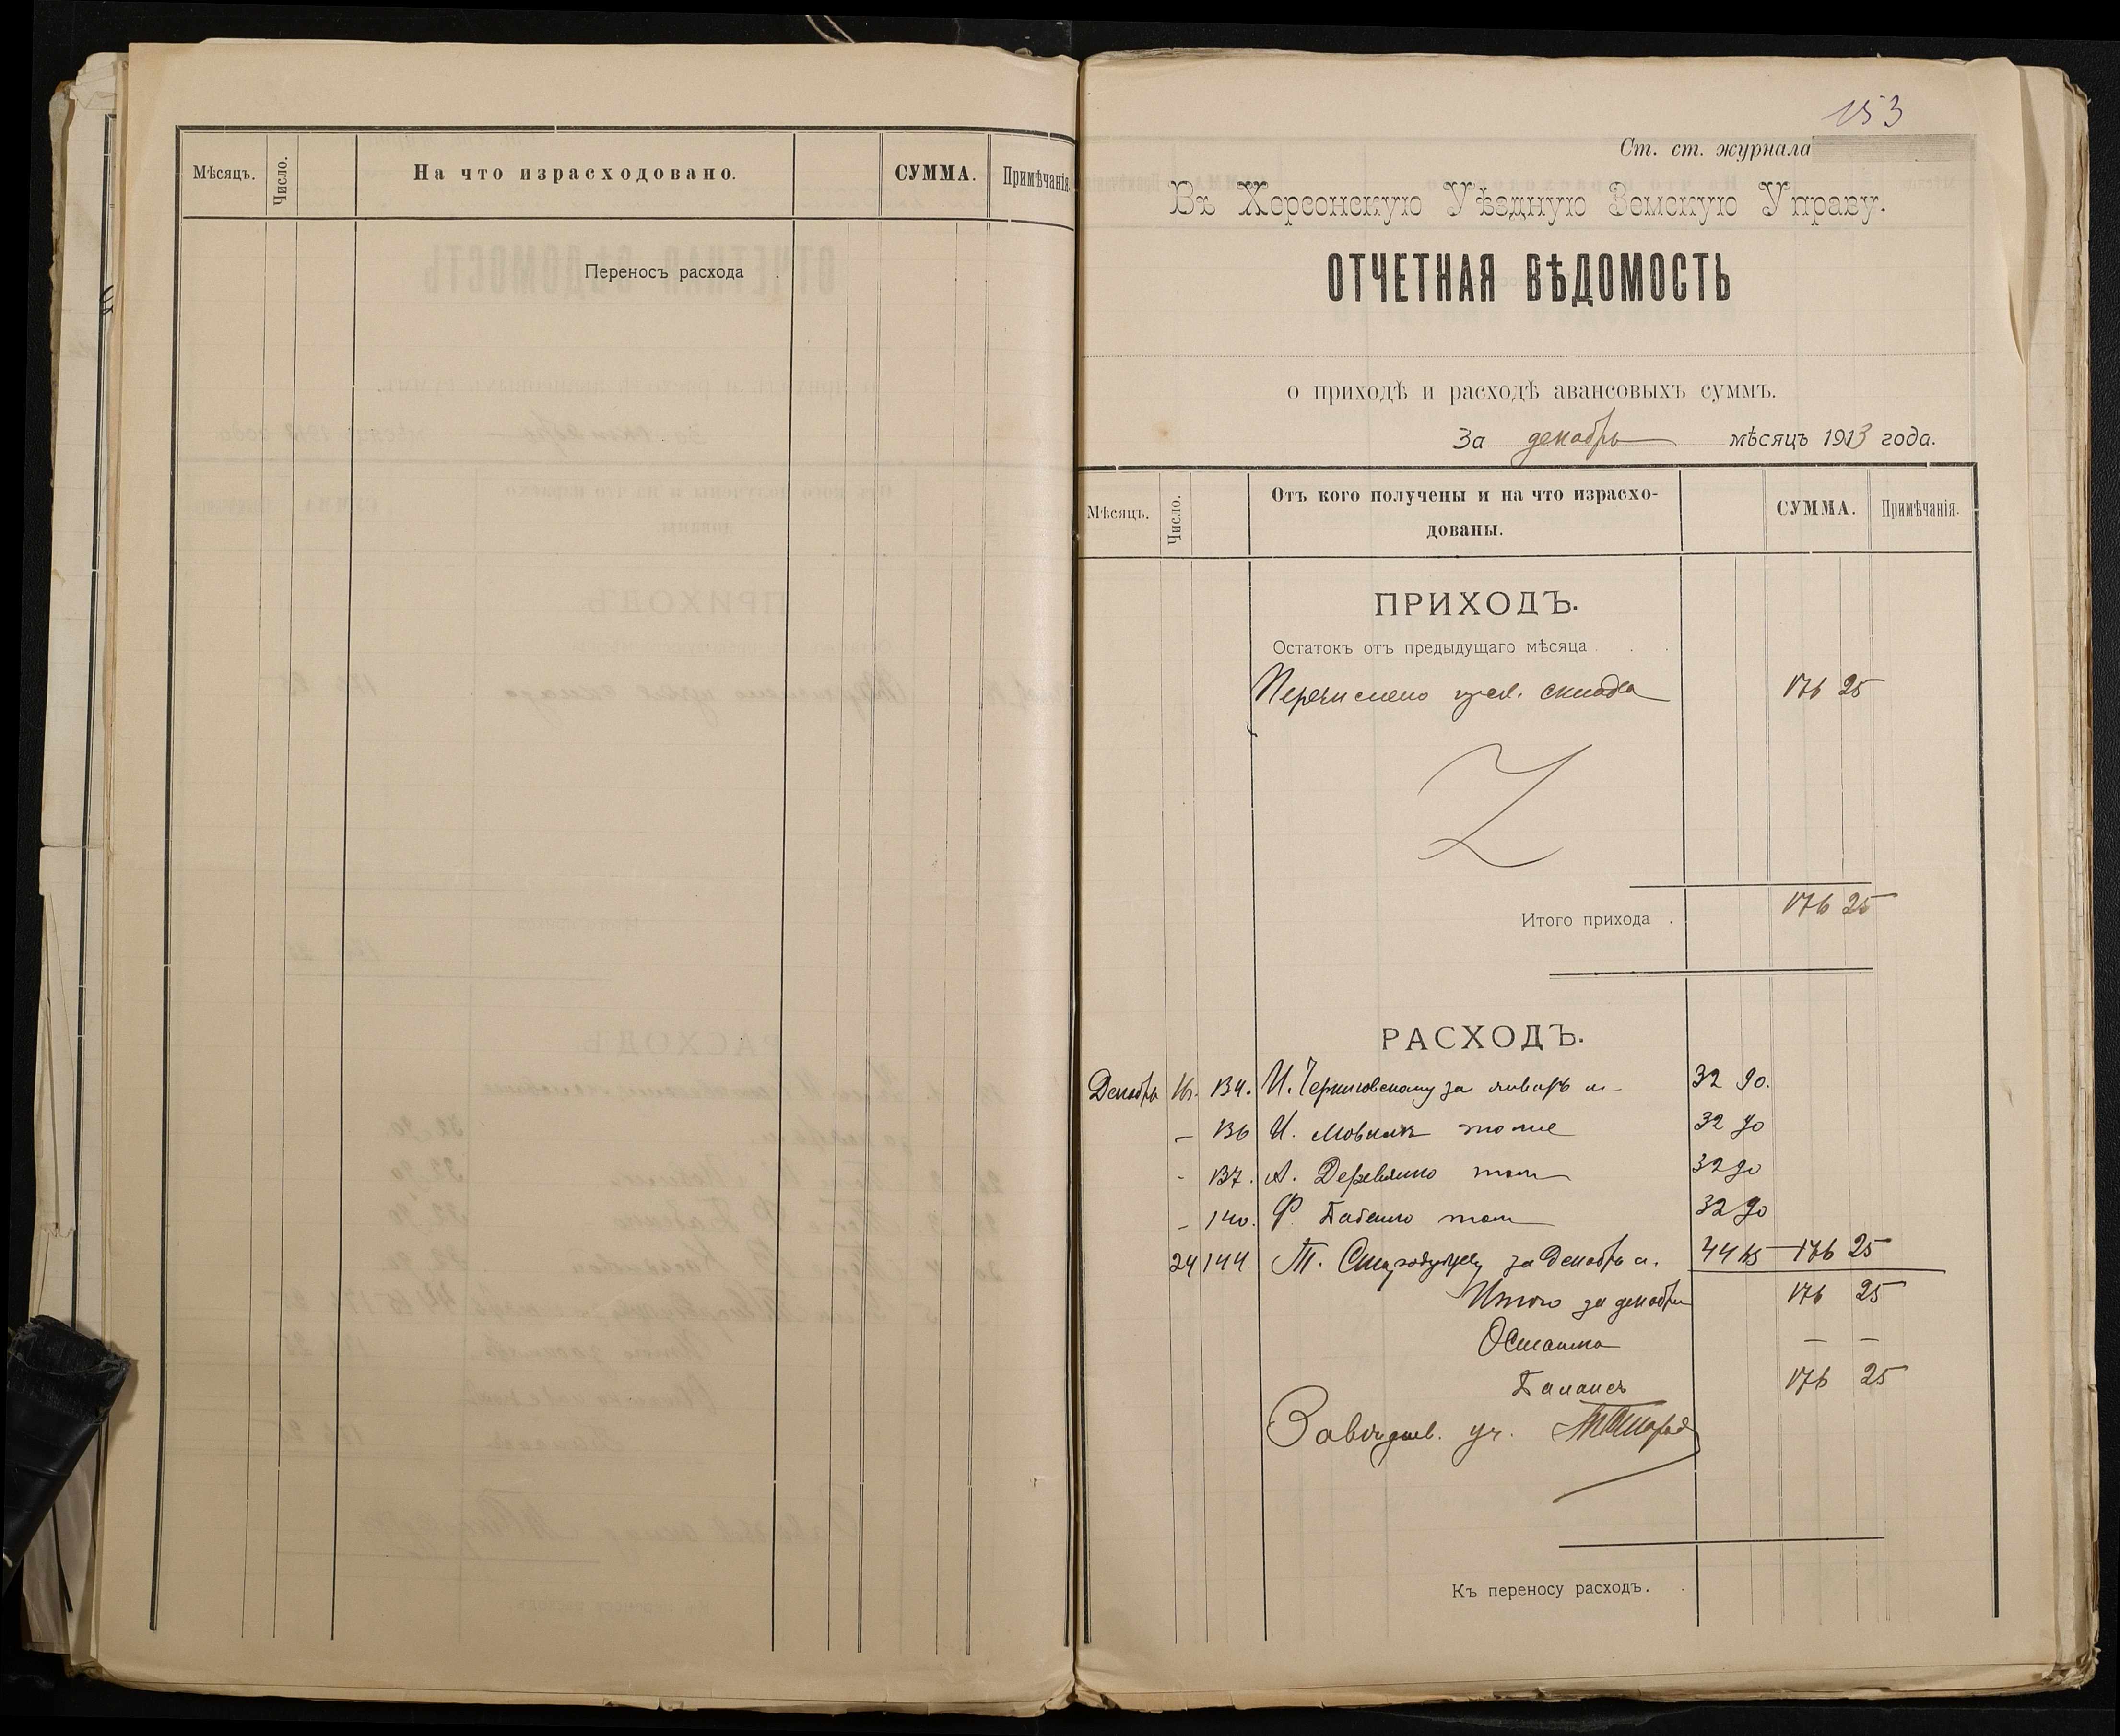 Мѣсяцъ. Число. На что израсходовано. СУММА. Примѣчанія.
Переносъ расхода
153
Ст. ст. журнала
Въ Херсонскую Уѣздную Земскую Управу.
ОТЧЕТНАЯ ВѢДОМОСТЬ
о приходѣ и расходѣ авансовыхъ суммъ.
За декабрь мѣсяцъ 1913 года.
Мѣсяцъ. Число. Отъ кого получены и на что израсхо-
дованы. СУММА. Примѣчанія.
ПРИХОДЪ.
Остатокъ отъ предыдущаго мѣсяца
Перечислено склада 176 25
Итого прихода 176 25
РАСХОДЪ.
Декабрь 16. 134. И. Черниговскому за январь м. 32 90.
– 136 И. тоже 32 90
- 137. А. Деревянко тож 32 90
– 140. Ф. Бабенко тож 32 90
24 144 Т. за Декабрь м. 44 65 176 25
Итого за декабрь 176 25
Остатка – –
Балансъ 176 25
Завѣдыв. уч.
Къ переносу расходъ.